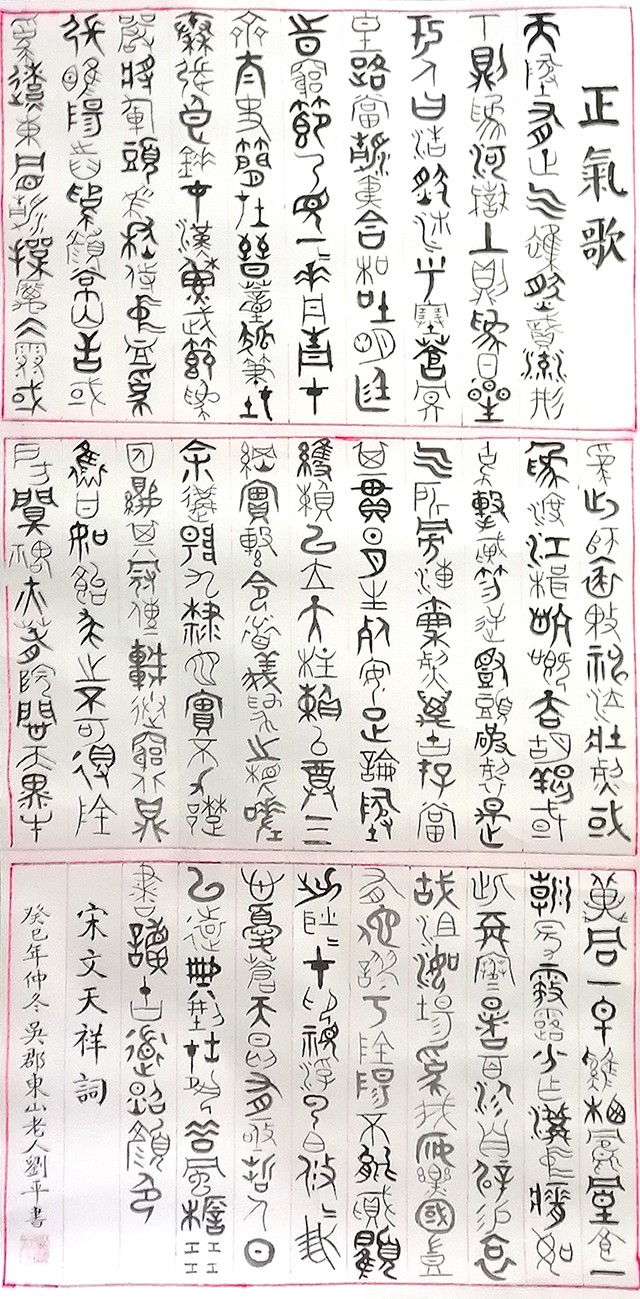 正氣歌
天地有正氣雜然賦流形
下則為河嶽上則為日星
於人曰浩然沛乎塞蒼冥
皇路當清夷含和吐明庭
時窮節乃見一一垂丹青在
齊太史簡在晉董狐筆在
秦張良椎在漢蘇武節為
嚴將軍頭為嵇侍中血為
張睢陽齒為顏常山舌或
為遼東帽清操厲冰雪或
為出師表鬼神泣壯烈或
為渡江楫慷慨吞胡羯或
為擊賊笏逆豎頭破裂是
氣所旁薄凜烈萬古存當
其貫日月生死安足論地
維賴以立天柱賴以尊三
綱實繫命道義為之根嗟
余遘陽九隸也實不力楚
囚纓其冠傳車送窮北鼎
鑊甘如飴求之不可得陰
房闃鬼火春院閟天黑牛
驥同一皁雞棲鳳凰食一
朝蒙霧露分作溝中瘠如
此再寒暑百沴自辟易哀
哉沮洳場為我安樂國豈
有他繆巧陰陽不能賊顧
此耿耿在仰視浮雲白悠悠我
心憂蒼天曷有極哲人日
已遠典型在夙昔風簷展
書讀古道照顏色
宋文天祥詞
癸巳年仲冬吳郡東山老人劉平書